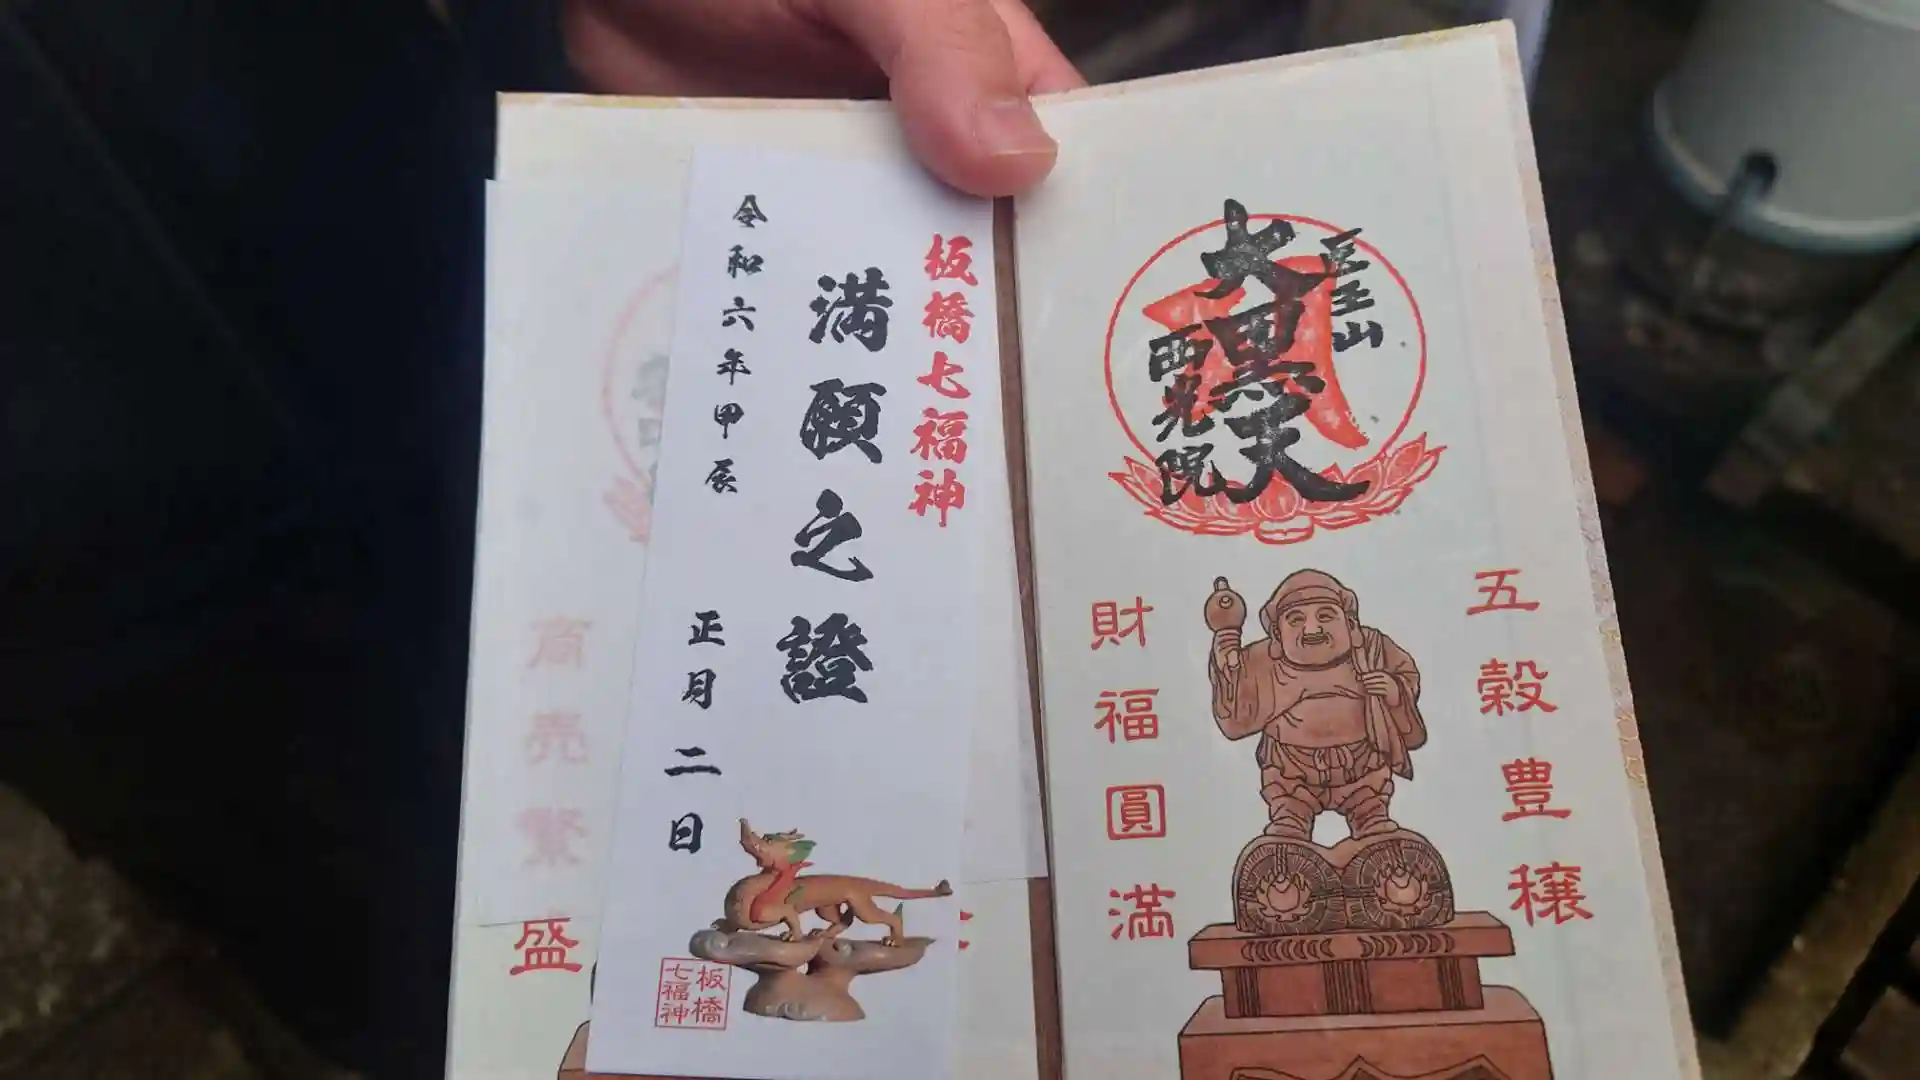 医王山
大黒天
西光院
五穀豊穣
財福圓満
板橋七福神
満願之證
令和六年甲辰
正月二日
板橋
七福神
商売繁盛